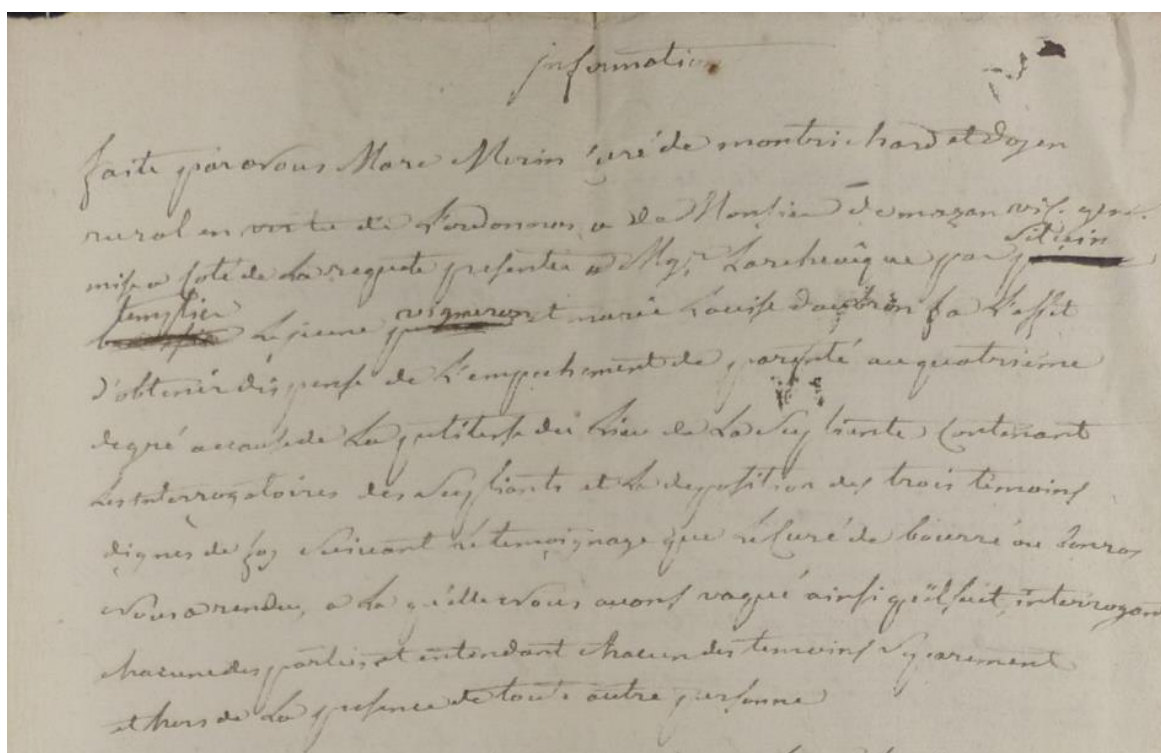 information
faite par Nous Marc Morin Curé de montrichard et doyen
rural en vertu de L'ordonnance de Monsieur de mazan vic. gene.
mise a coté de La requete presentée a Mgr. Larcheveque par silvain
templier Le jeune vigneron et marie Louise daubron a L'effet
d'obtenir dispense de L'empechement de parenté au quatrieme
degré a cause de La petitesse du Lieu de La supliante Contenant
Les interrogatoires des supliants et La deposition des trois temoins
dignes de foy suivant le temoignage que le Curé de bourré
Nous a rendu, a La quelle Nous avons vaqué ainsi qu'il suit, interrogant
chacune des parties et entendant chacun des temoins separement
et hors de La presence de toute autre personne